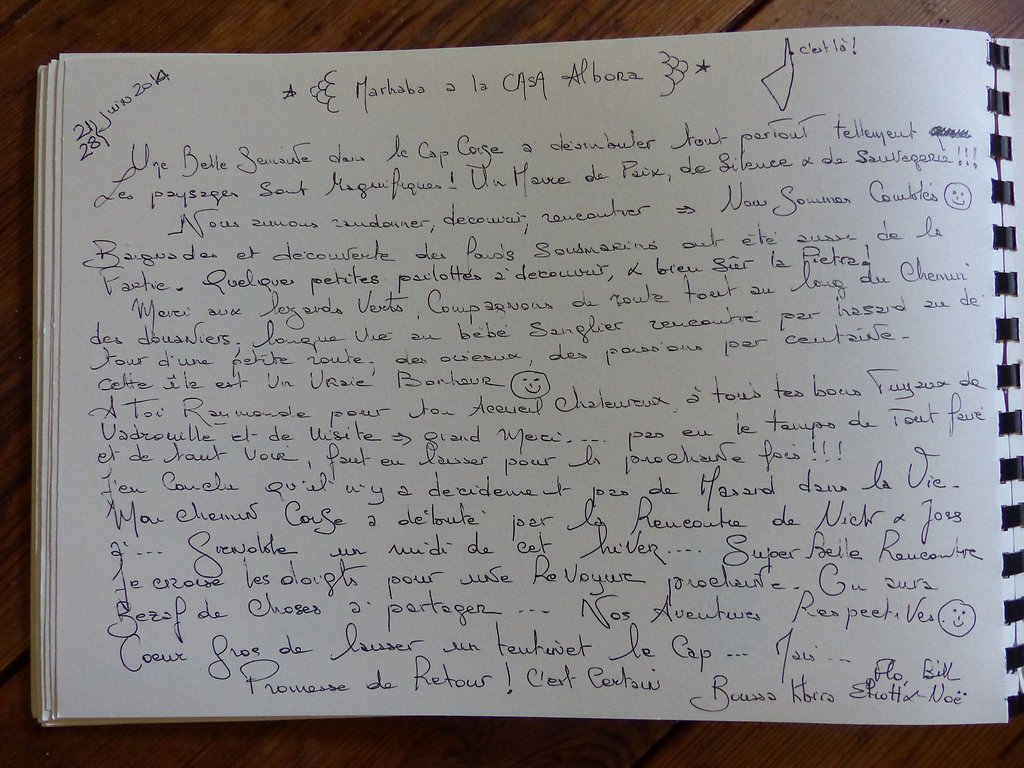 c'est là!
Marhaba a la CASA Albora
21/
28/ Juin 2014
Une Belle Semaine dans le Cap Corse a déambuler tout partout tellement
Les paysages sont Magnifiques! Un Havre de Paix, de Silence & de Sauvagerie!!!
Nous aimons randonner, découvrir, rencontrer ⇒ Nous Sommes Comblés
Baignades et découverte des fonds sousmarins ont été aussi de la
Partie. Quelques petites paillottes à découvrir, & bien sûr la Pietra!
Merci aux lézards Verts, Compagnons de route tout au long du Chemin
des douaniers, longue Vie au bébé Sanglier rencontré par hasard au dé
tour d'une petite route, des oiseaux, des poissons par centaine.
Cette île est Un Vraie Bonheur
A Toi Raymonde pour ton Accueil Chaleureux, à tous tes bons Tuyaux de
Vadrouille et de Visite ⇒ grand Merci.... pas eu le temps de Tout faire
et de tout Voir, faut en laisser pour la prochaine fois!!!
J'en Conclu qu'il n'y a décidement pas de Hasard dans la Vie.
Mon chemin Corse a débuté par la Rencontre de Nick & Joss
à... Grenoble un midi de cet hiver.... Super Belle Rencontre
Je croise les doigts pour une ReVoyure prochaine. On aura
Bezef de choses à partager... Nos Aventures Respectives.
Coeur gros de laisser un tentinet le Cap... Mais...
Promesse de Retour! C'est Certain
Flo, Bill
Boussa Kbira & Noë